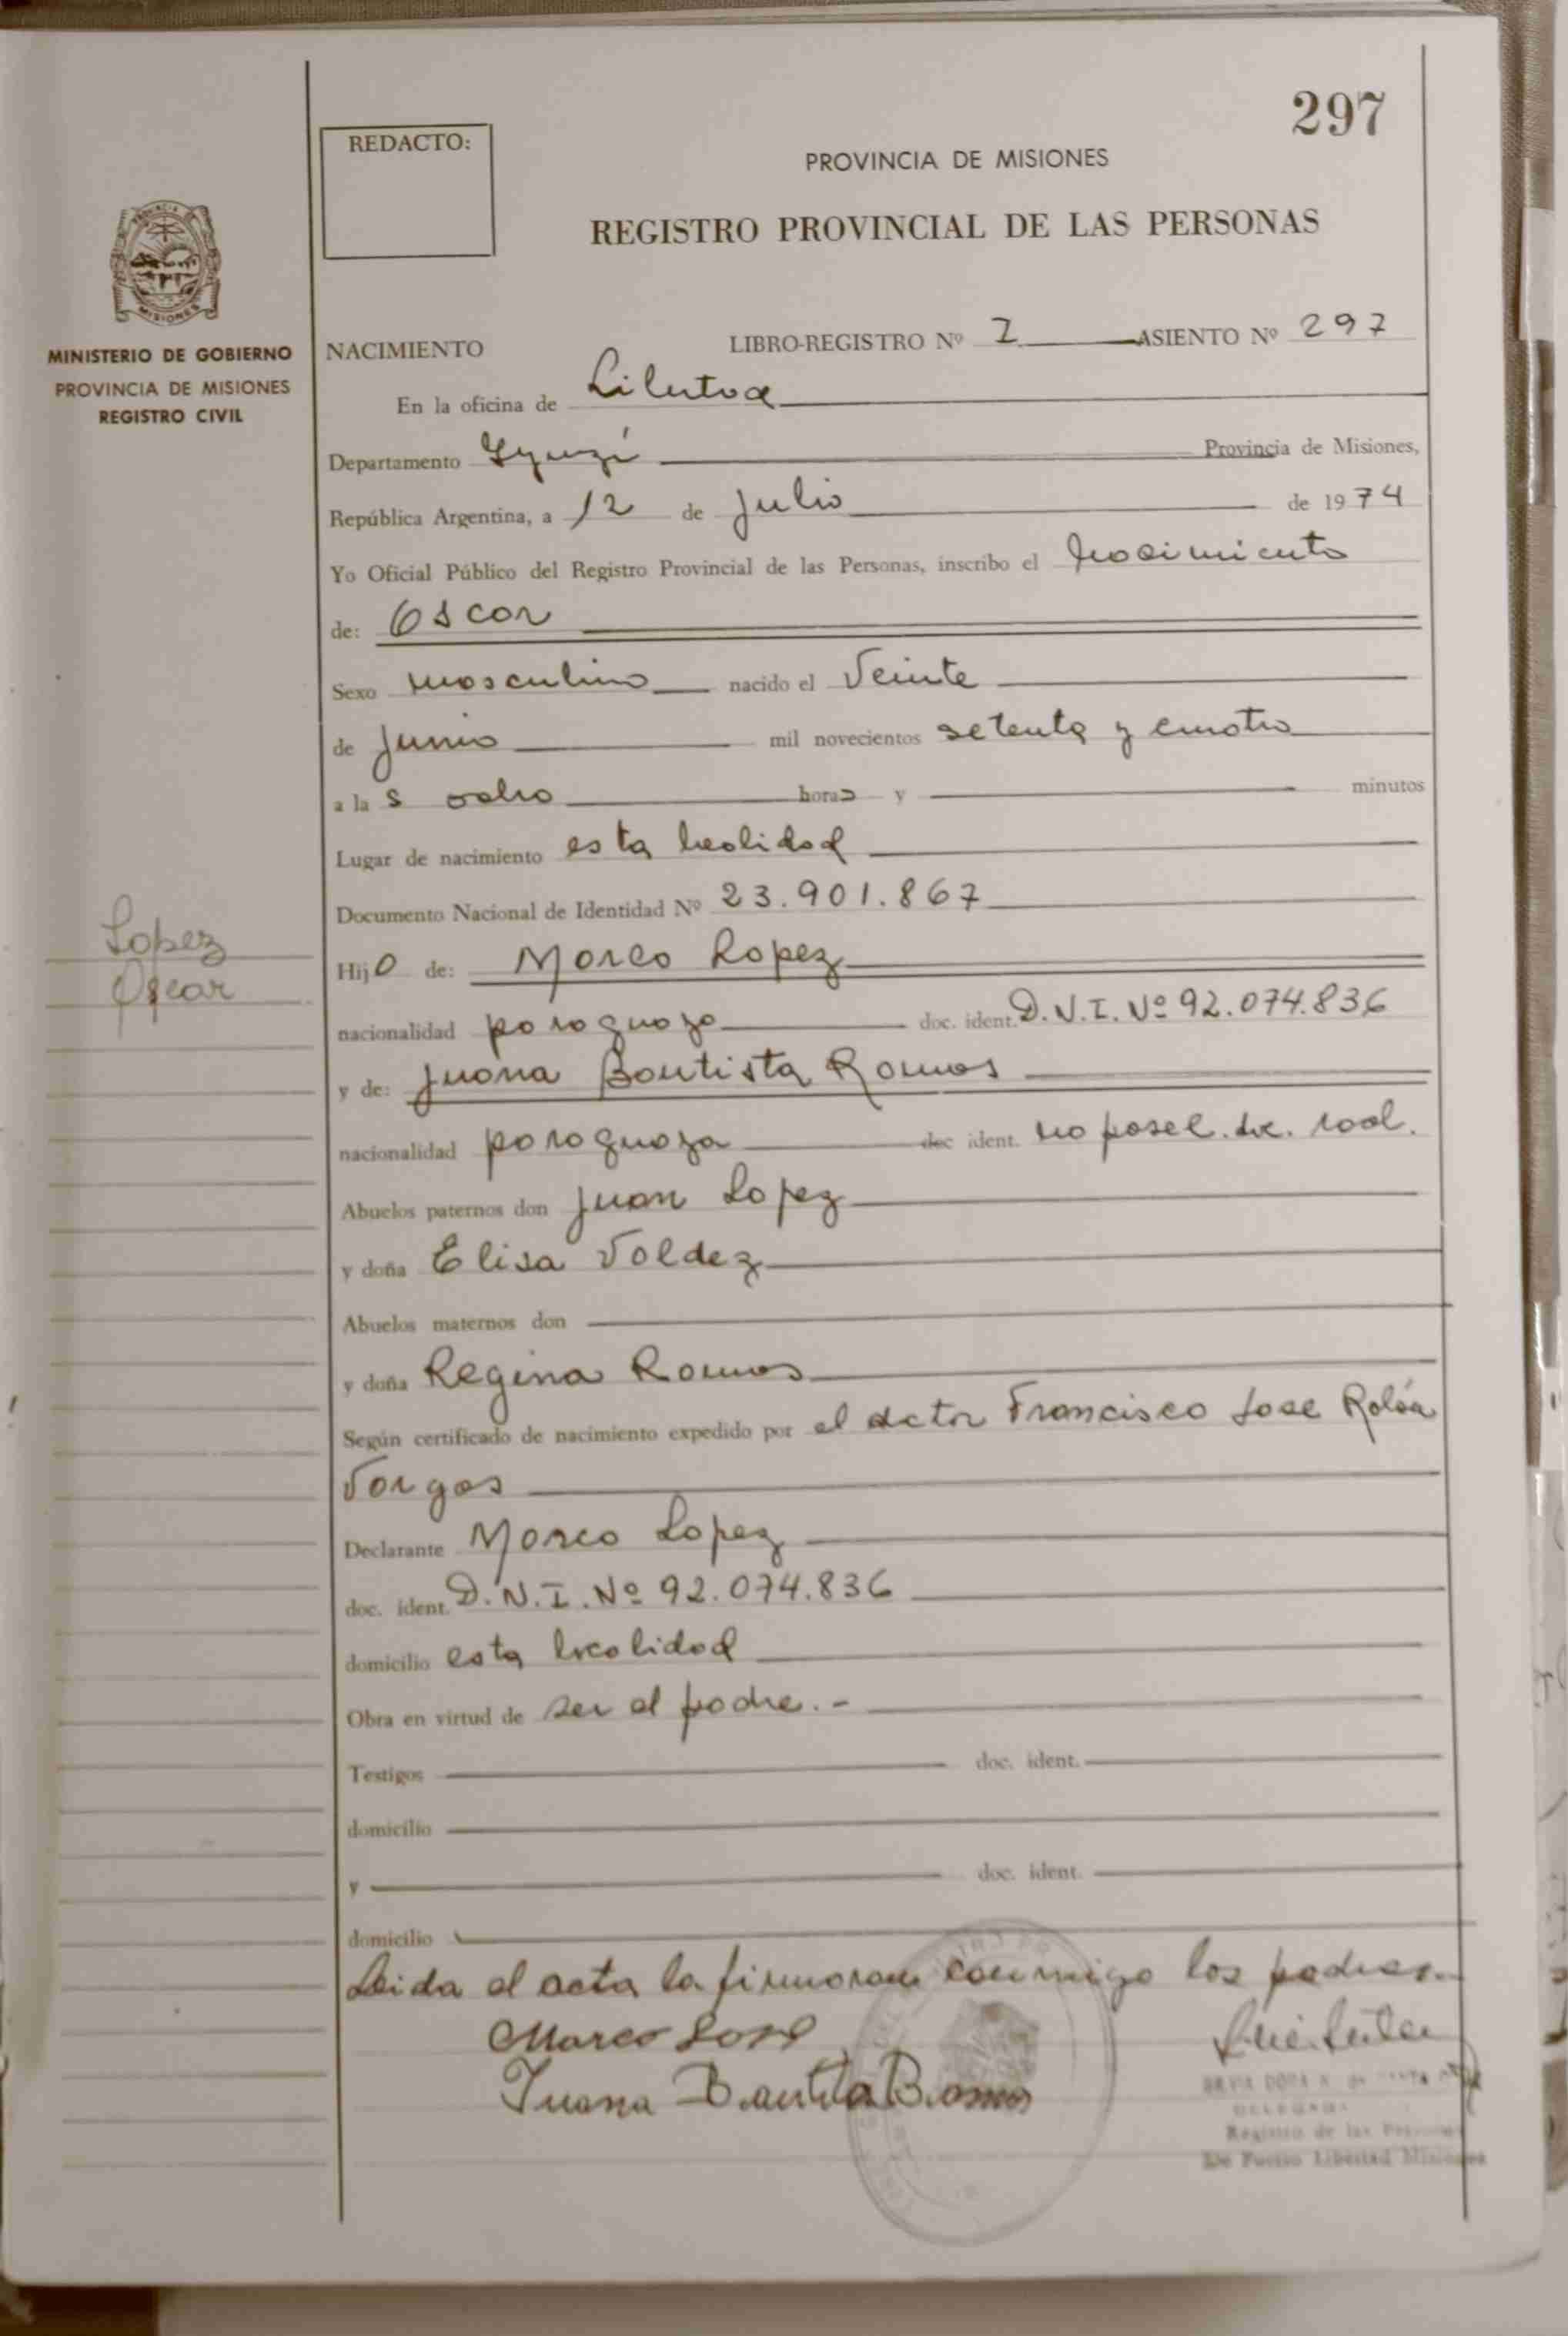 297
REDACTO:
PROVINCIA DE MISIONES
REGISTRO PROVINCIAL DE LAS PERSONAS
MISIONES
MINISTERIO DE GOBIERNO
PROVINCIA DE MISIONES
REGISTRO CIVIL
NACIMIENTO LIBRO-REGISTRO Nº I ASIENTO Nº 297
En la oficina de Libertad
Departamento Iguazú Provincia de Misiones,
República Argentina, a 12 de Julio de 1974
Yo Oficial Público del Registro Provincial de las Personas, inscribo el Nacimiento
de: Oscar
Sexo masculino nacido el Veinte
de Junio mil novecientos setenta y cuatro
a las ocho horas y minutos
Lugar de nacimiento esta localidad
Documento Nacional de Identidad Nº 23.901.867
Lopez
Oscar
Hijo de: Marco Lopez
nacionalidad paraguayo doc. ident. D.N.I. Nº 92.074.836
y de: Juana Bautista Ramos
nacionalidad paraguaya doc ident. no posee. doc. nool.
Abuelos paternos don Juan Lopez
y doña Elisa Valdez
Abuelos maternos don
y doña Regina Ramos
Según certificado de nacimiento expedido por el doctor Francisco Jose Rolón
Vargas
Declarante Marco Lopez
doc. ident. D.N.I. Nº 92.074.836
domicilio esta localidad
Obra en virtud de ser el padre.-
Testigos doc. ident.
domicilio
y doc. ident.
domicilio
Leida el acta la firmaron conmigo los padres.
Marco Lopez
Juana Bautista Ramos
DELEGADA
Registro de las Personas
De Puerto Libertad Misiones